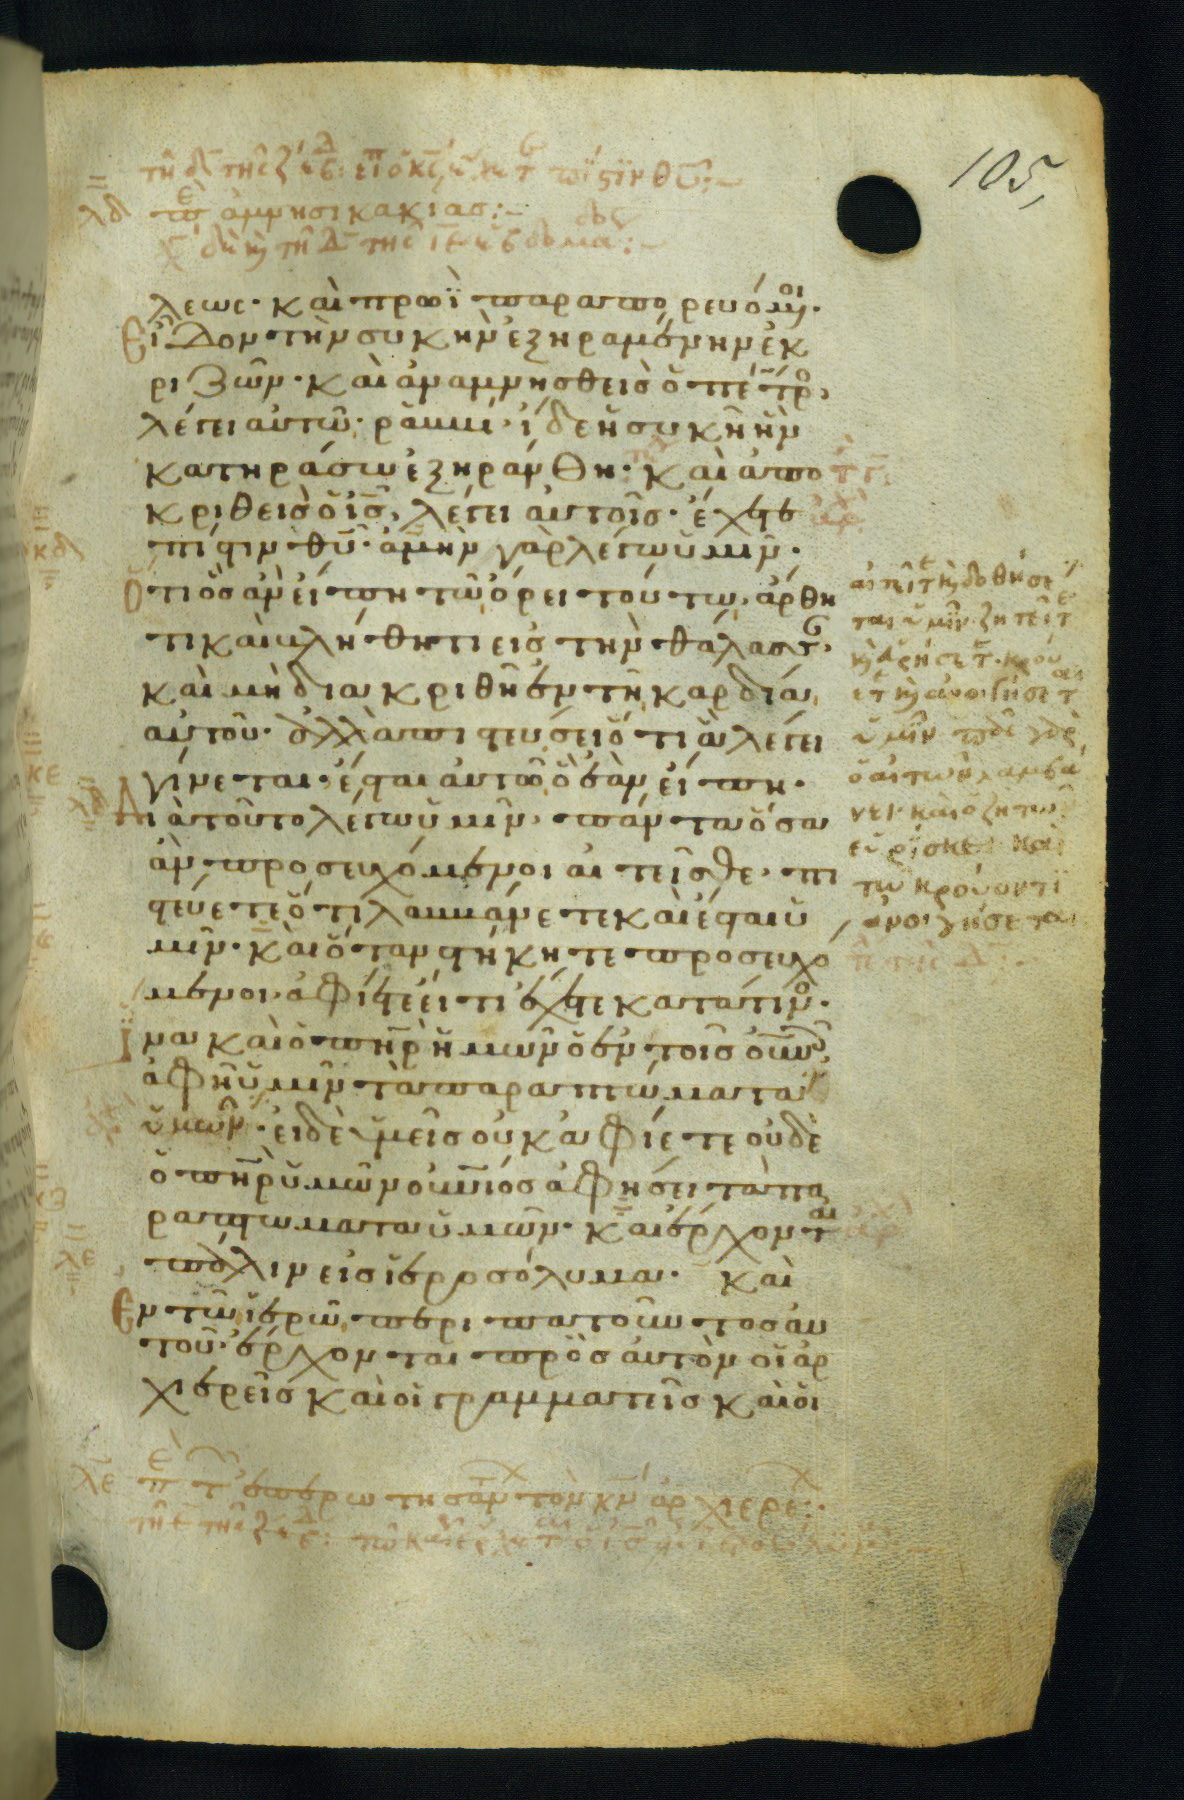 105,
λδ πε ἀμνησικακίας:-
λεως· καὶ πρωῒ παραπορευόμενοι·
Εἶδον τὴν συκῆν ἐξηραμένην ἐκ
ριζῶν· καὶ ἀναμνησθεὶς ὁ πέτρος
λέγει αὐτῶ· ραββί· ἴδε ἡ συκῆ ἣν
κατηράσω ἐξηράνθη· καὶ ἀπο
κριθεὶς ὁ ι̅ς̅ λέγει αὐτοῖς· ἔχετε
πίστιν θ̅υ̅· ἀμὴν γὰρ λέγω ὑμῖν·
Ὅτι ὃς ἂν εἴπη τῶ ὄρει τούτω, ἄρθη
τι καὶ βλήθητι εἰς τὴν θάλασσαν·
καὶ μὴ διακριθῆ ἐν τῆ καρδία
αὐτοῦ· ἀλλὰ πιστεύσει ὅτι ἃ λέγει
γίνεται· ἔσται αὐτῶ ὃ ἐὰν εἴπη·
Διὰ τοῦτο λέγω ὑμῖν· πάντα ὅσα
ἂν προσευχόμενοι αἰτεῖσθε· πι
στεύετε ὅτι λαμβάνετε καὶ ἔσται ὑ
μῖν· καὶ ὅταν στήκητε προσευχό
μενοι· ἀφίετε εἴ τι ἔχετε κατά τινος·
Ἵνα καὶ ὁ π̅η̅ρ̅ ἡμῶν ὁ ἐν τοῖς ο̅υ̅ν̅οῖς
ἀφῆ ὑμῖν τὰ παραπτώματα
ὑμῶν· εἰ δὲ ὑμεῖς οὐκ ἀφίετε οὐδὲ
ὁ π̅η̅ρ̅ ὑμῶν ὁ ο̅υ̅ν̅ιος ἀφήσει τὰ πα
ραπτώματα ὑμῶν· καὶ ἔρχονται
πάλιν εἰς ἱεροσόλυμα· καὶ
Ἐν τῶ ἱερῶ περιπατοῦντος αὐ
τοῦ· ἔρχονται πρὸς αὐτὸν οἱ ἀρ
χιερεῖς καὶ οἱ γραμματεῖς καὶ οἱ
κδ
κε
λδ
λε
αἰτεῖτε καὶ δοθήσε
ται ὑμῖν· ζητεῖτε
καὶ εὑρήσετε· κρού
ετε καὶ ἀνοιγήσεται
ὑμῖν πᾶς γὰρ
ὁ αἰτῶν λαμβά
νει· καὶ ὁ ζητῶν
εὑρίσκει καὶ
τῶ κρούοντι
ἀνοιγήσεται
λε πε τ ἐπερωτησάντων τὸν κ̅ν̅ ἀρχιερε:·